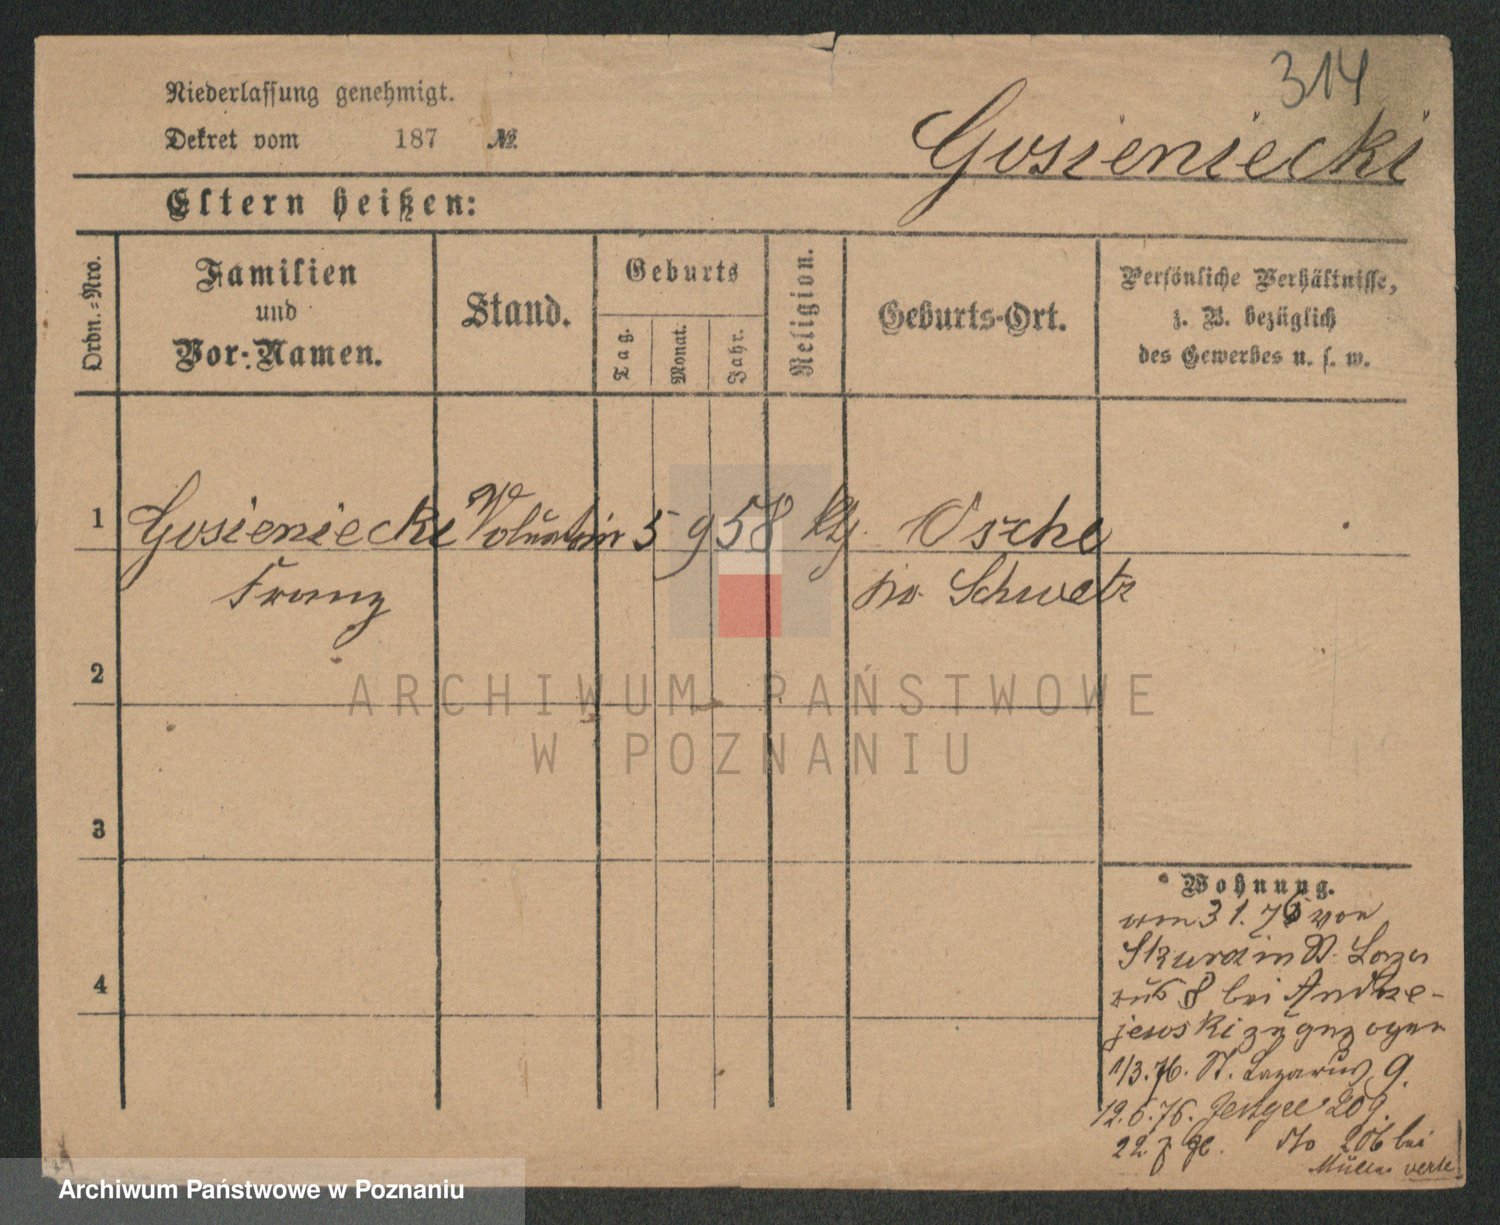 314
Niederlassung genehmigt.
Dekret vom 187 №
Gosieniecki
Eltern heißen:
Ordn.-Nro.
Familien und Vor-Namen.
Stand.
Geburts
Tag.
Monat.
Jahr.
Religion.
Geburts-Ort.
Persönliche Verhältnisse,
z. B. bezüglich
des Gewerbes u. s. w.
1 Gosieniecki Volontair 5 9 58 ktg. Osche
Franz Schwetz
2
3
4
Wohnung.
31. 76 von
Skurcz in St. Laza
rus 8 bei Andrze-
jewski zugezogen
1/3. 76. St. Lazarus 9.
12. 6. 76. Jersyce 209.
22 dto 206 bei
Müller verte
ARCHIWUM PAŃSTWOWE
W POZNANIU
Archiwum Państwowe w Poznaniu